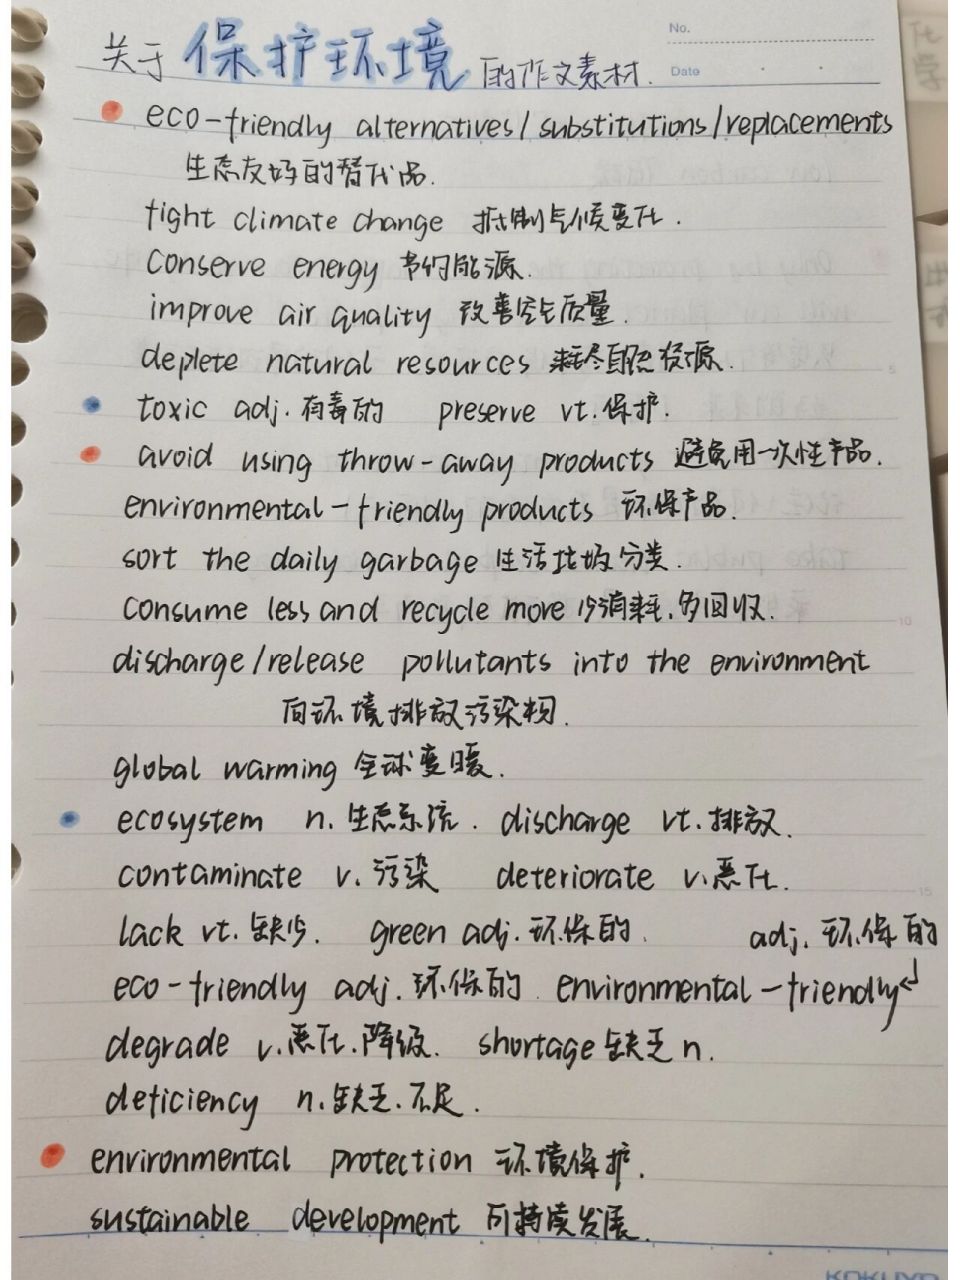 关于保护环境的作文素材.
No.
Date
eco-friendly alternatives/substitutions/replacements
生态友好的替代品.
fight climate change 抵制气候变化.
Conserve energy 节约能源.
improve air quality 改善空气质量.
deplete natural resources 耗尽自然资源.
toxic adj.有毒的 preserve vt.保护.
avoid using throw-away products 避免用一次性产品.
environmental-friendly products 环保产品.
sort the daily garbage 生活垃圾分类.
Consume less and recycle more 少消耗.多回收.
discharge/release pollutants into the environment
向环境排放污染物.
global warming 全球变暖.
ecosystem n.生态系统. discharge vt.排放.
contaminate v.污染 deteriorate v.恶化.
lack vt.缺少. green adj.环保的. adj.环保的
eco-friendly adj.环保的. environmental-friendly
degrade v.恶化.降级. shortage 缺乏 n.
deficiency n.缺乏.不足.
environmental protection 环境保护.
sustainable development 可持续发展.